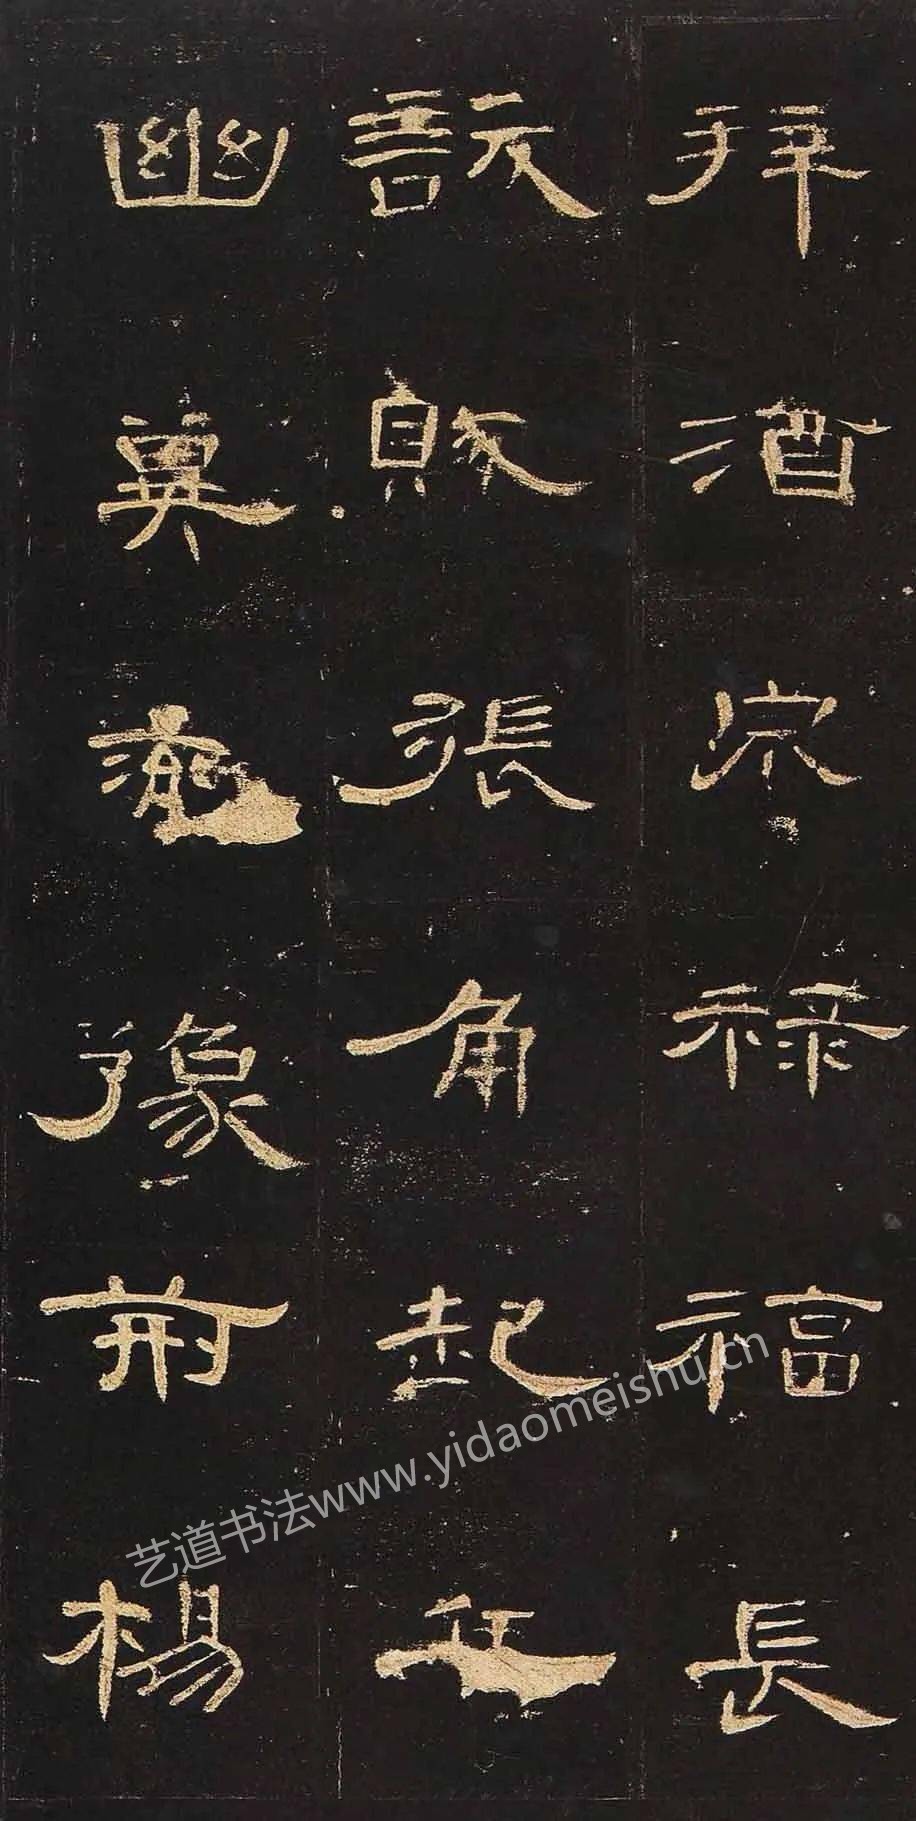 拜酒泉祿福長
訞賊張角起兵
幽冀兗豫荊楊
艺道书法www.yidaomeishu.cn